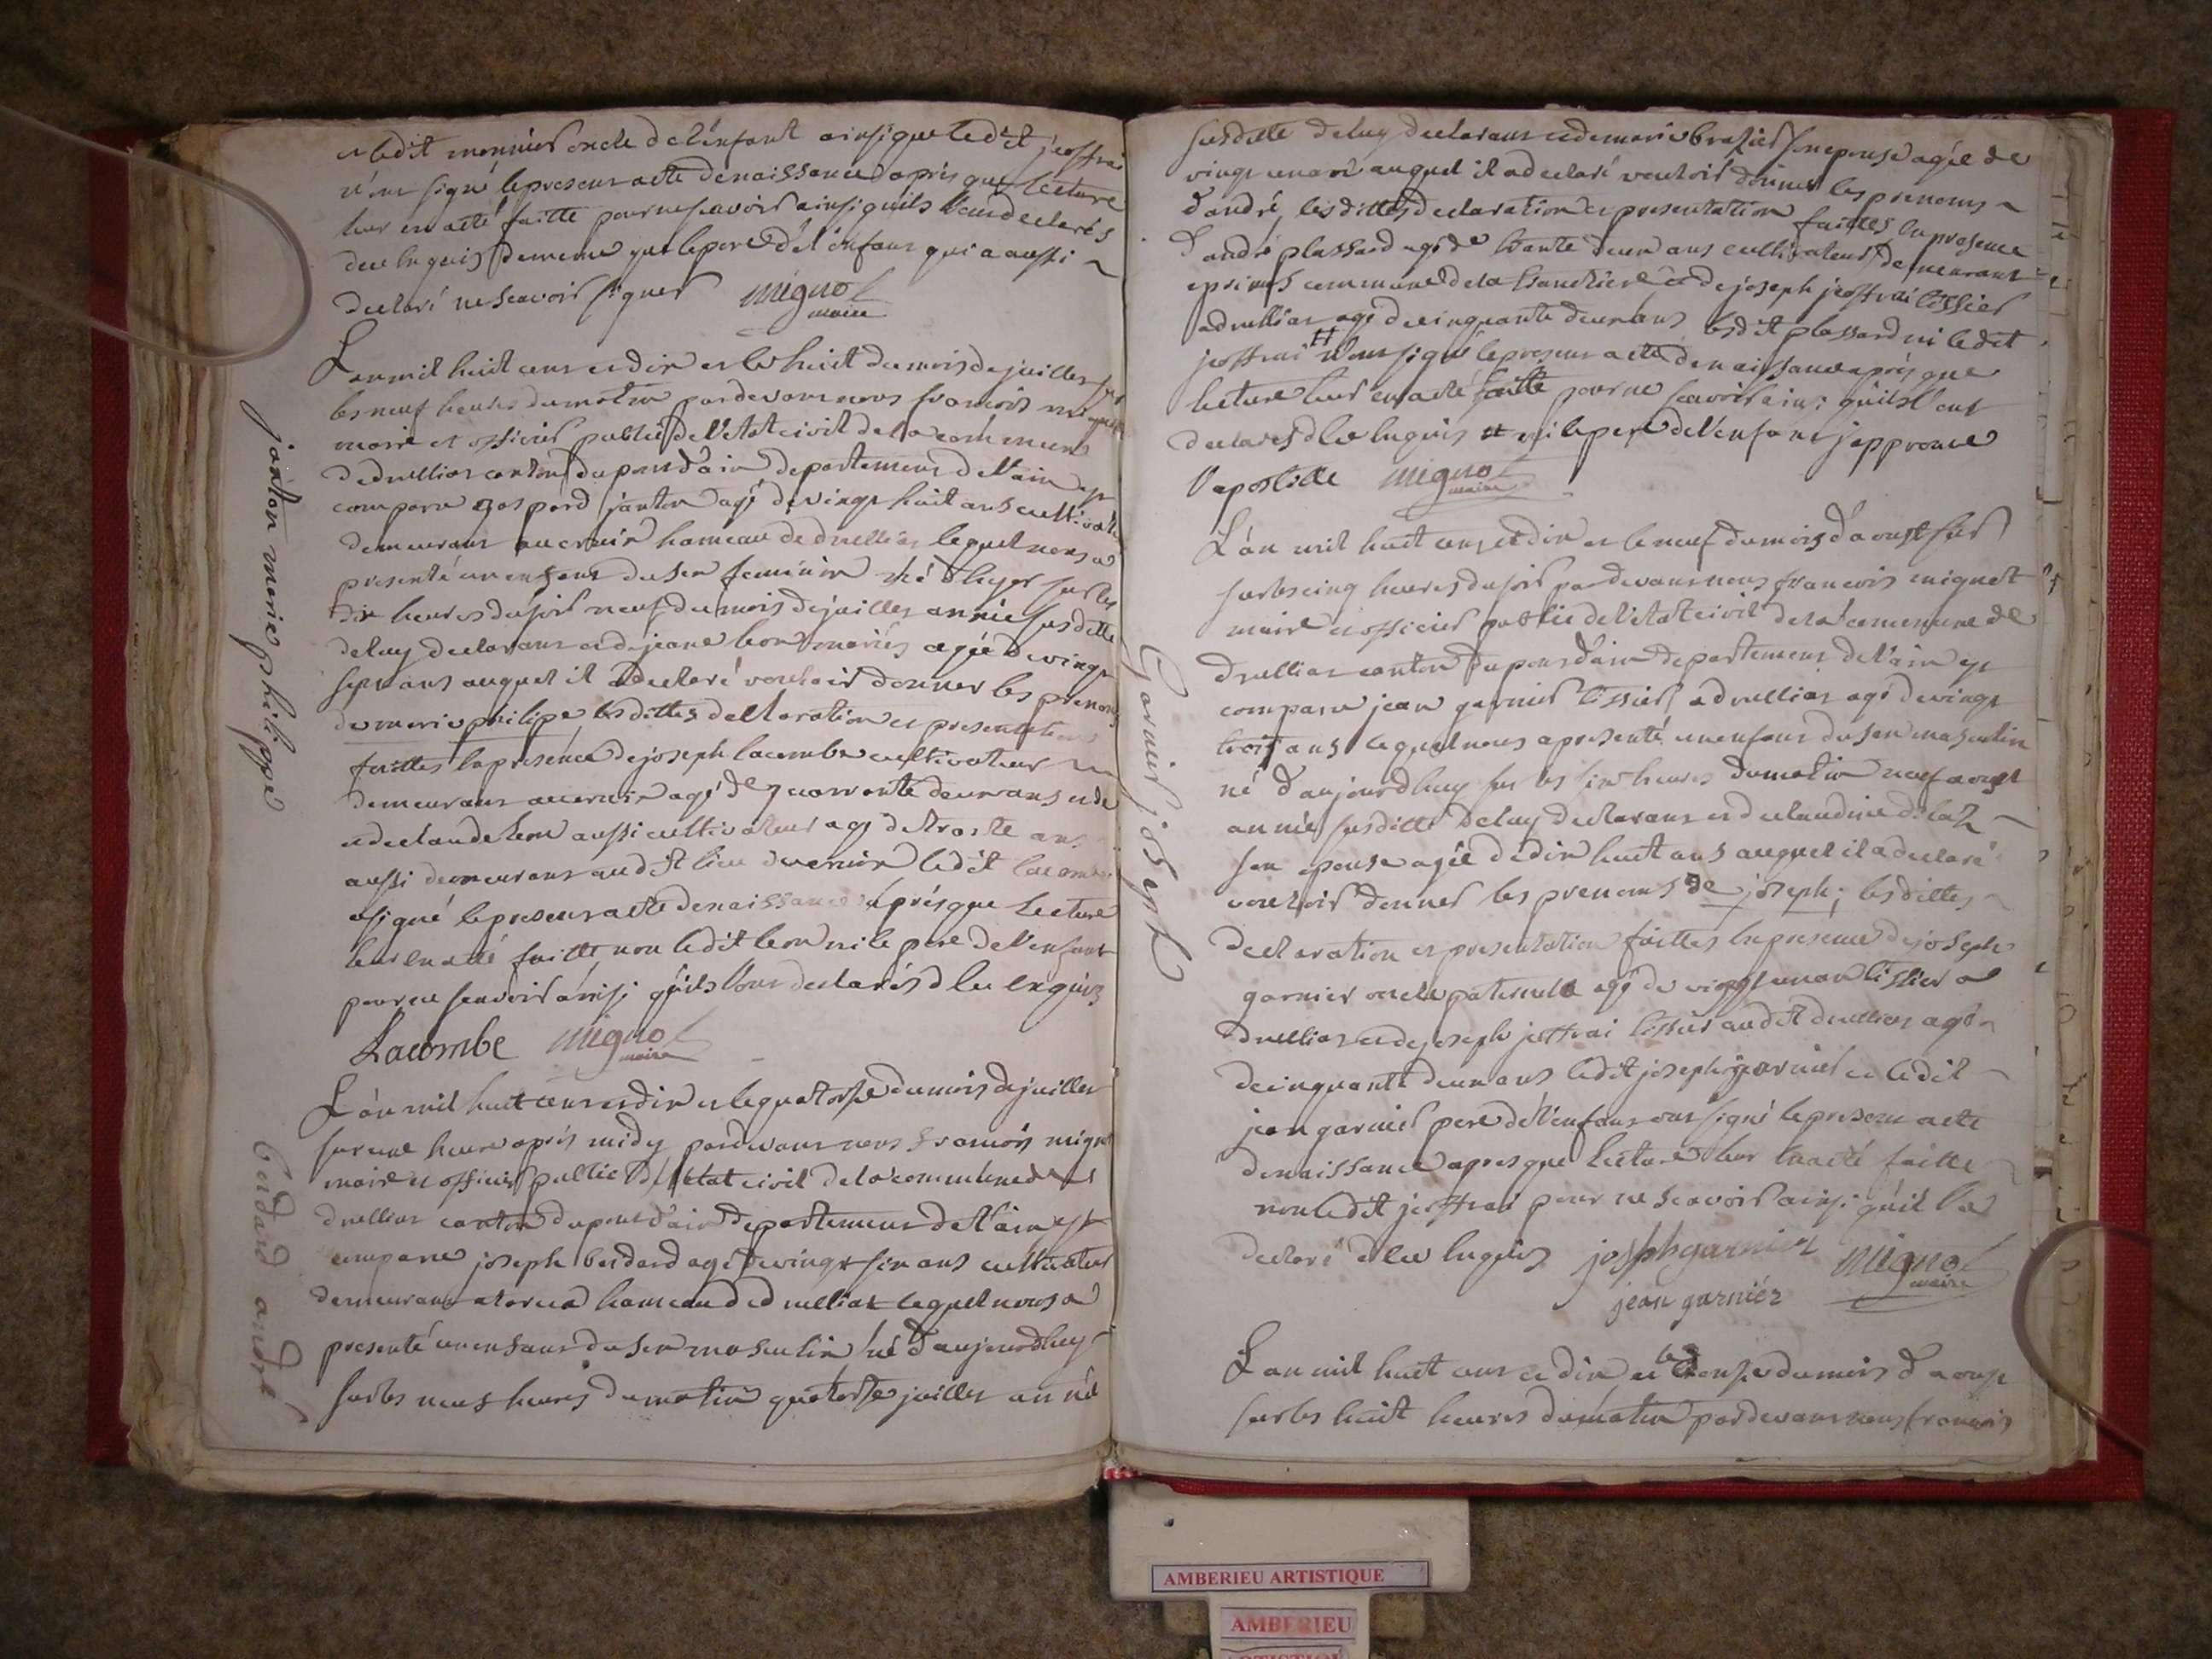 et ledit monnier oncle de l'enfant ainsi que ledit jeoffrai
n'ont signé le present acte de naissance après que lecture
leur en a été faitte pour ne scavoir ainsi quils l'ont declarés
de ce enquis de meme que le pere de l'enfant qui a aussi
declaré ne scavoir signer mignot
maire
janton marie philippe
L'an mil huit cent et dix et le huit du mois de juillet sur
les neuf heures du matin pardevant nous francois mignot
maire et officier public de l'etat civil de la commune
de druillias canton du pons d'ain departement de l'ain est
comparu gaspard janton agé de vingt huit ans cultivateur
demeurant au cruix hameau de druillias lequel nous a
presenté un enfant du sex feminin né d'hyer sur les
dix heures du soir neuf du mois de juillet année susditte
de luy declarant et de jeane leon mariés agée de vingt
sept ans auquel il a declaré vouloir donner les prenoms
de marie philipe lesdittes declaration et presentations
faittes en presence de joseph lacombe cultivateur
demeurant au cruix agé de quarrante deux ans et de
et de claude leon aussi cultivateur agé de trante ans
aussi demeurant audit lieu du cruix ledit lacombe
a signé le present acte de naissance après que lecture
leur en a été faitte, non ledit leon ni le pere de l'enfant
pour ne scavoir ainsi quils l'ont declarés de ce enquis
Lacombe mignot
maire
berdard andré
L'an mil huit cent et dix et le quatorse du mois de juillet
sur une heure après midy pardevant nous francois mignot
maire et officier public de l'etat civil de la commune de
druillias canton du pons d'ain departement de l'ain est
comparu joseph berdard agé de vingt six ans cultivateur
demeurant a hameau de druillias lequel nous a
presenté un enfant du sex masculin né d'aujourdhuy
sur les neuf heures du matin quatorse juillet année
susditte de luy declarant et de marie brazier son epouse agée de
vingt un an auquel il a declaré vouloir donner les prenoms
d'andré, lesdittes declaration et presentation faittes en presence
d'andré plassard agé de trante deux ans cultivateur demeurant
commune de la tranclière et de joseph jeoffrai tissier
a druillias agé de cinquante deux ans ledit plassard ni ledit
jeoffrai # n'ont signé le present acte de naissance après que
lecture leur en a été faitte pour ne scavoir ainsi quils l'ont
declarés de ce enquis # ni le pere de l'enfant j'approuve
l'apostille mignot
maire
Garnier joseph
L'an mil huit cent et dix et le neuf du mois d'aoust sur
sur les cinq heures du soir pardevant nous francois mignot
maire et officier public de l'etat civil de la commune de
druillias canton du pons d'ain departement de l'ain est
comparu jean garnier tissier a druillias agé de vingt
trois ans lequel nous a presenté un enfant du sex masculin
né d'aujourdhuy sur les six heures du matin neuf aoust
année susditte de luy declarant et de claudine
son epouse agée de dix huit ans auquel il a declaré
vouloir donner les prenoms de joseph; lesdittes
declaration et presentation faittes en presence de joseph
garnier oncle paternelle agé de vingt un an tissier a
druillias et de joseph jeoffrai tissier audit druillias agé
de cinquante deux ans ledit joseph garnier et ledit
jean garnier pere de l'enfant ont signé le present acte
de naissance apres que lecture leur en a été faitte
non ledit jeoffrai pour ne scavoir ainsi quil l'a
declaré de ce enquis joseph garnier mignot
maire
jean garniér
L'an mil huit cent et dix et le du mois d'aoust
sur les huit heures du matin pardevant nous francois
AMBERIEU ARTISTIQUE
AMBERIEU
ARTISTIQUE